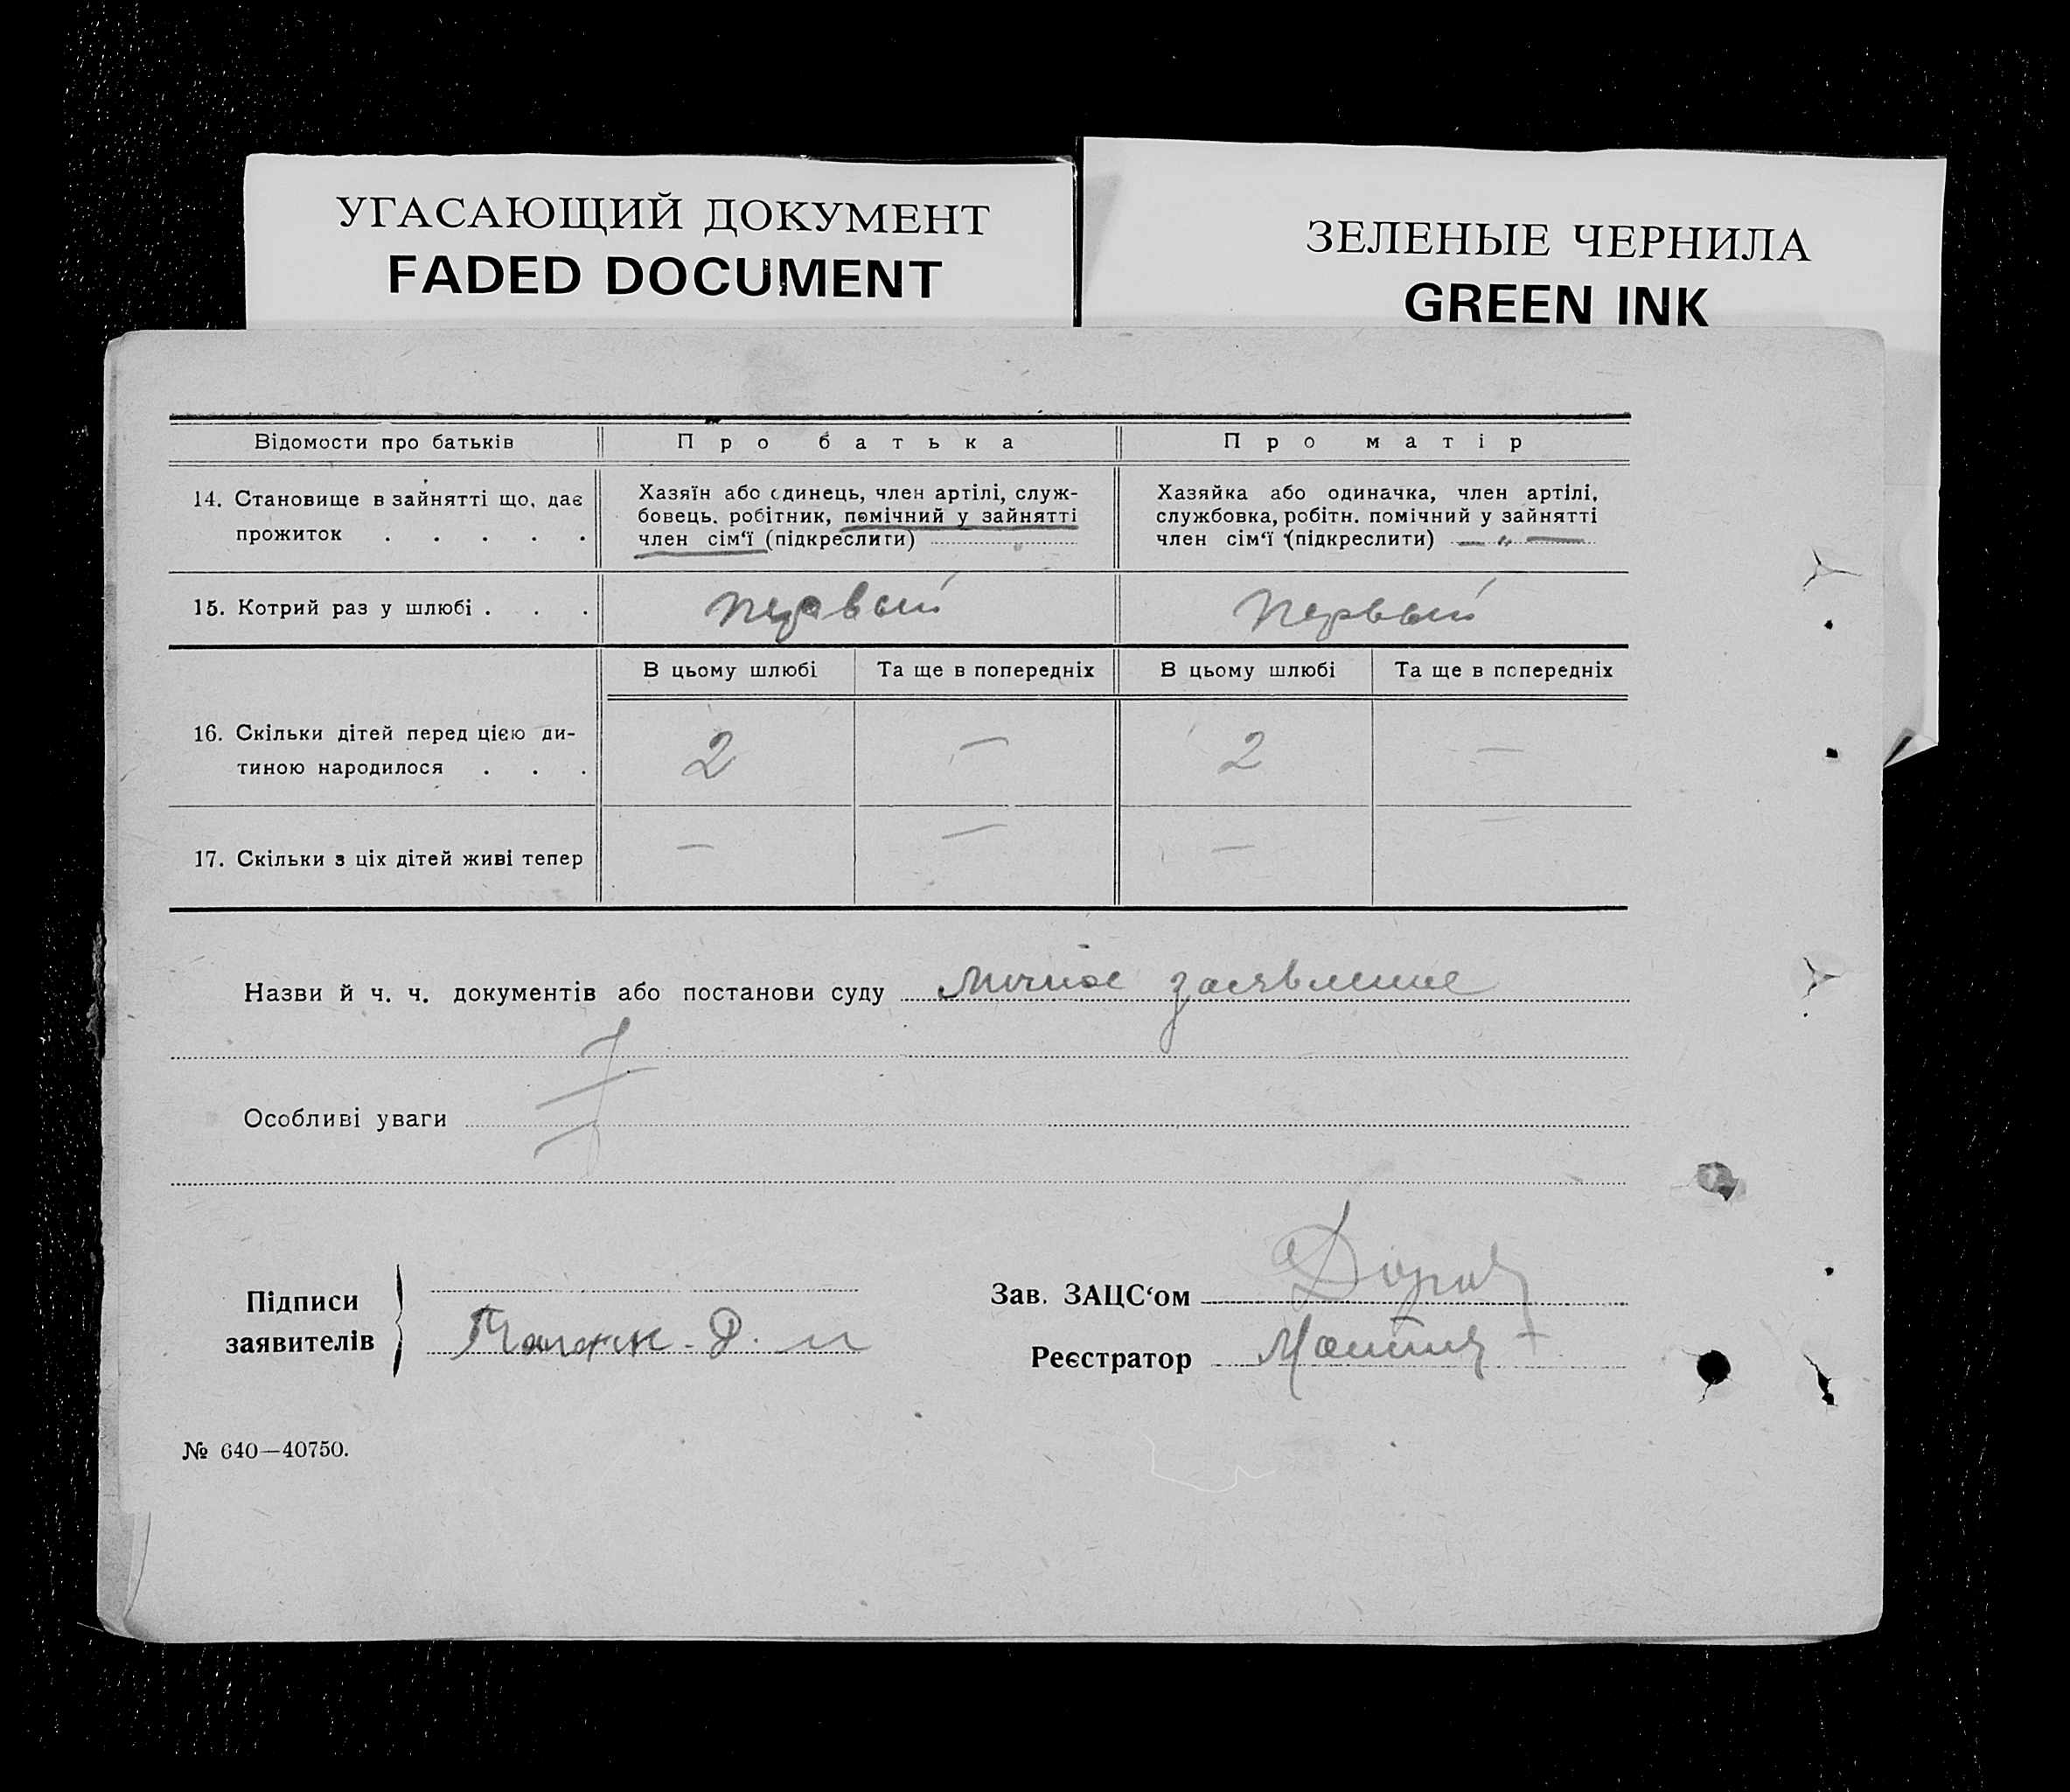 УГАСАЮЩИЙ ДОКУМЕНТ
FADED DOCUMENT
ЗЕЛЕНЫЕ ЧЕРНИЛА
GREEN INK
Відомости про батьків
Про батька
Про матір
14. Становище в зайнятті що, дає
прожиток . . . . .
Хазяїн або одинець, член артілі, служ-
бовець. робітник, помічний у зайнятті
член сім‘ї (підкреслити)
Хазяйка або одиначка, член артілі,
службовка, робітн. помічний у зайнятті
член сім‘ї (підкреслити) — „ —
15. Котрий раз у шлюбі . . .
первый
первый
В цьому шлюбі
Та ще в попередніх
В цьому шлюбі
Та ще в попередніх
16. Скільки дітей перед цією ди-
тиною народилося . . .
2
—
2
—
17. Скільки з ціх дітей живі тепер
—
—
—
—
Назви й ч. ч. документів або постанови суду личное заявление
Особливі уваги
Підписи
заявителів
Зав. ЗАЦС‘ом
Реєстратор
№ 640—40750.